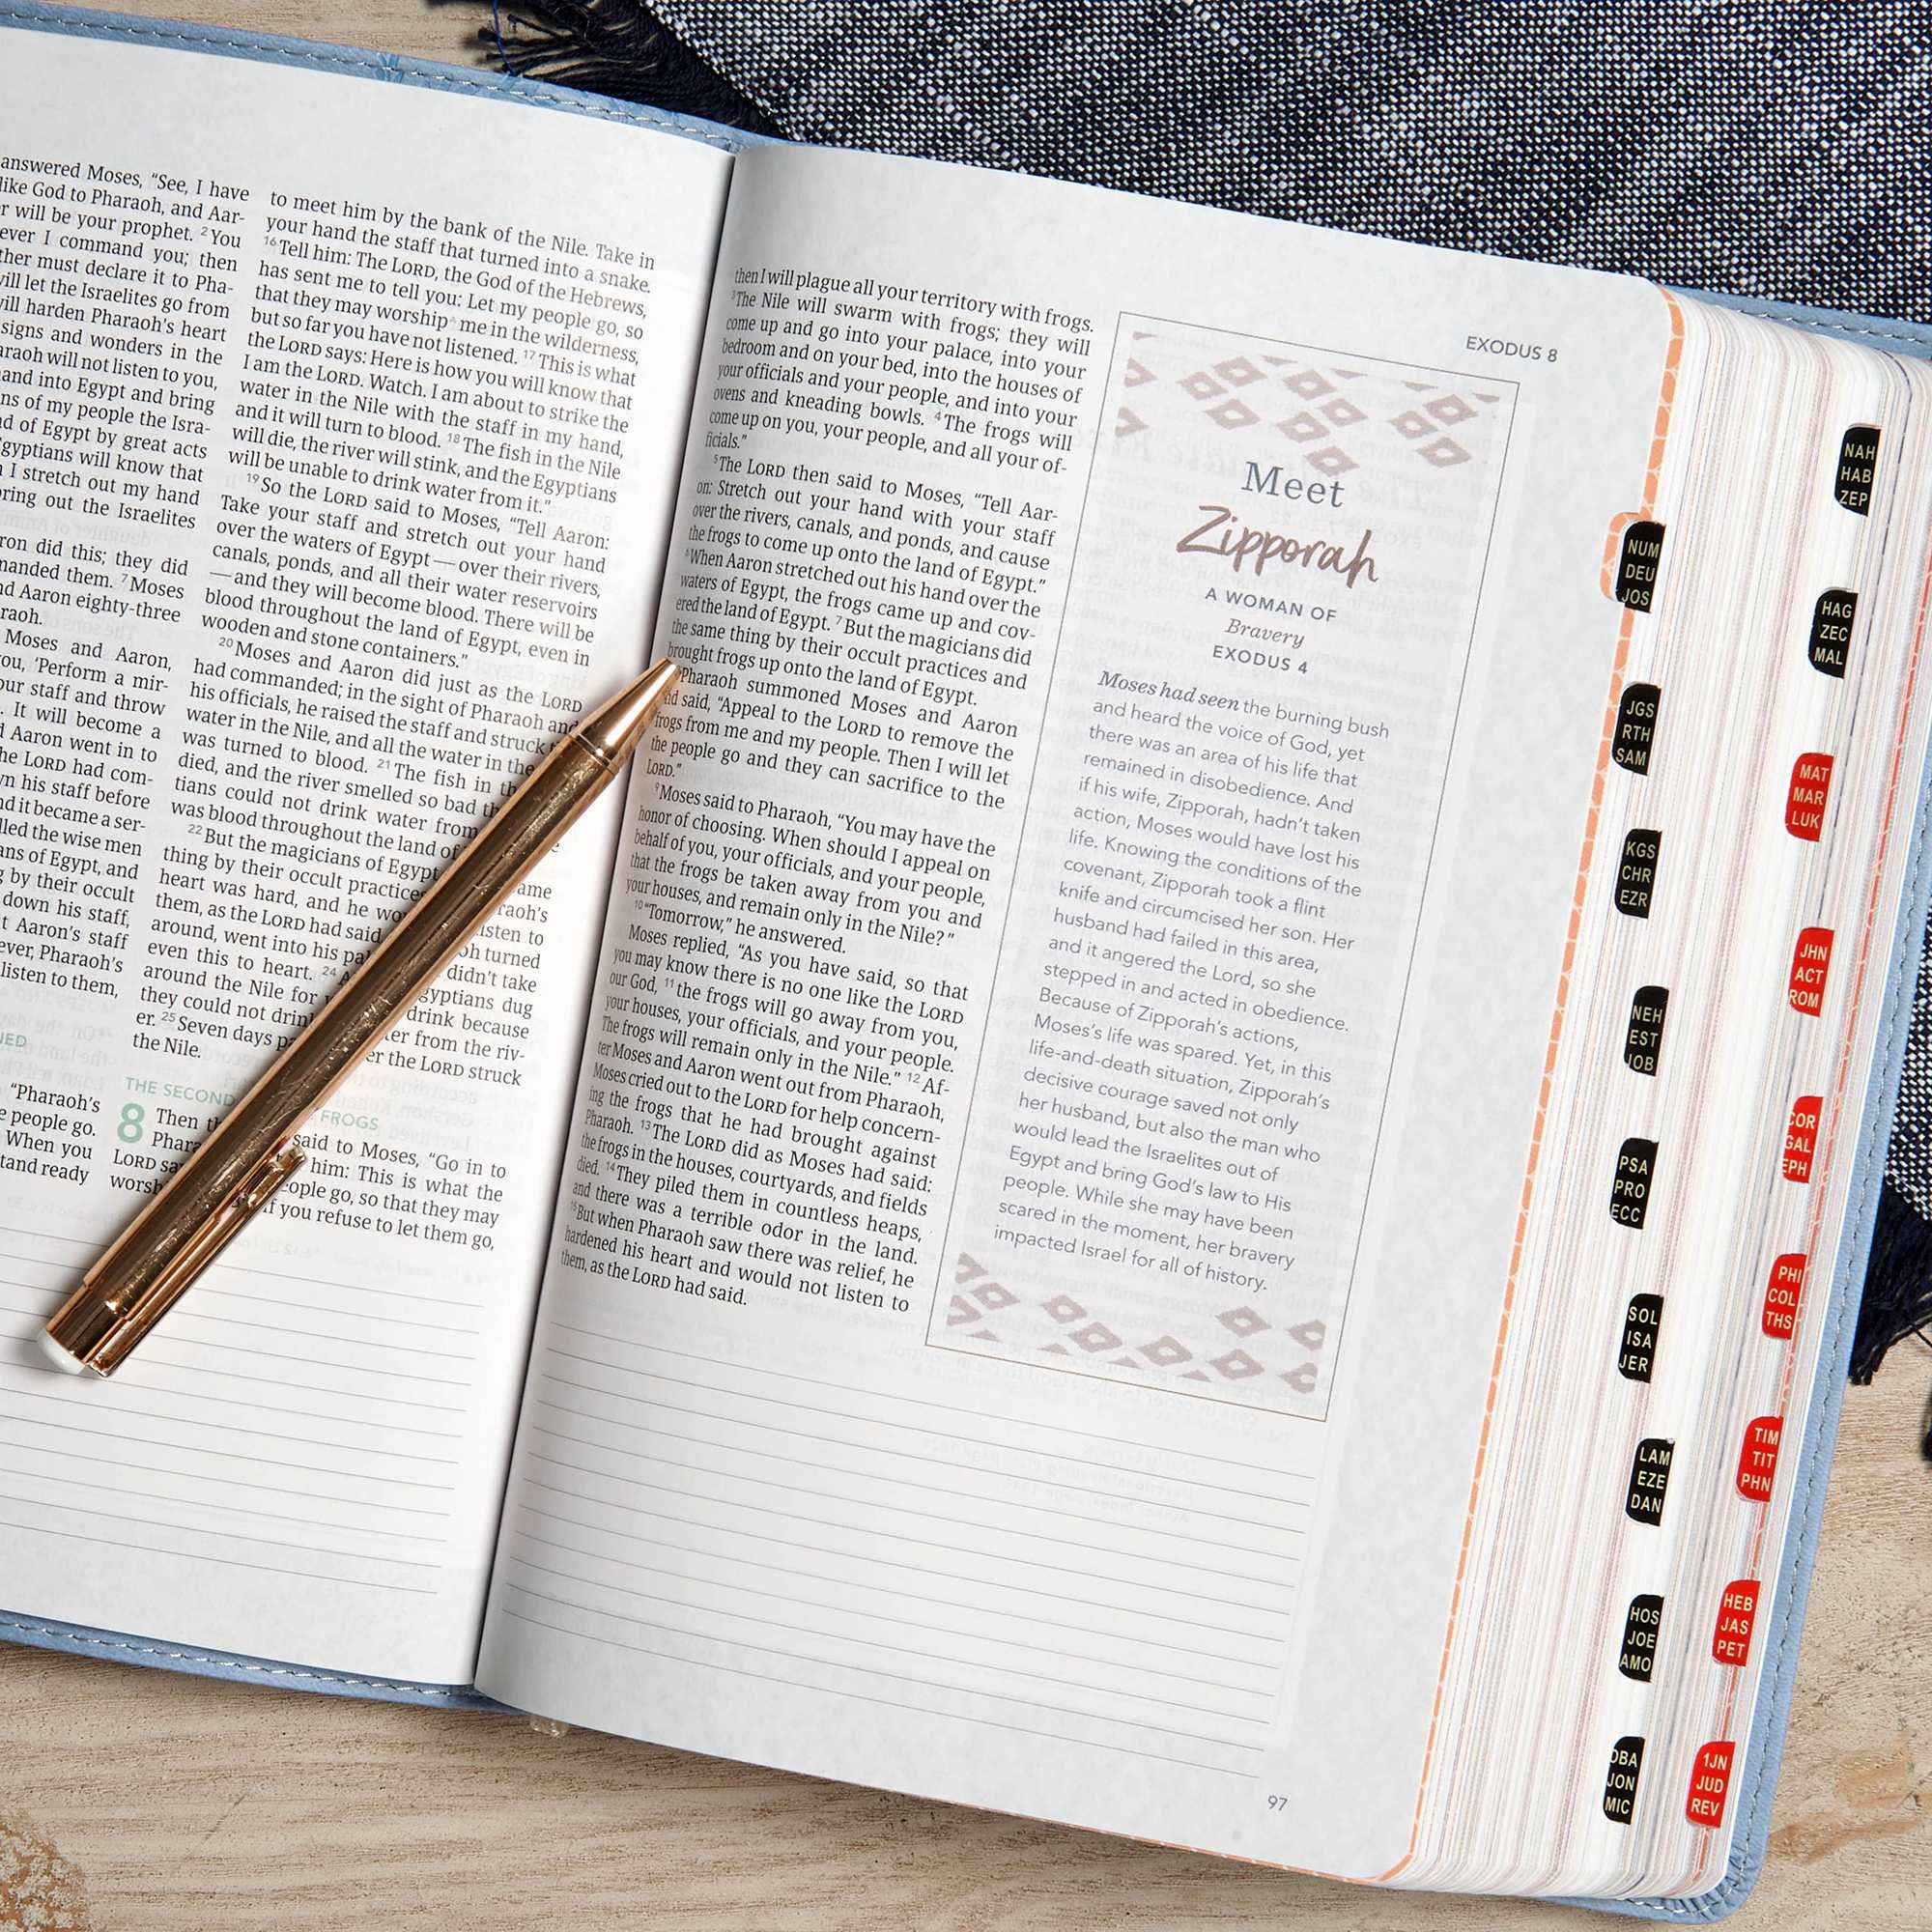 answered Moses, “See, I have
like God to Pharaoh, and Aar-
will be your prophet. 2 You
ever I command you; then
ther must declare it to Pha-
will let the Israelites go from
will harden Pharaoh’s heart
signs and wonders in the
Pharaoh will not listen to you,
hand into Egypt and bring
of my people the Isra-
of Egypt by great acts
Egyptians will know that
I stretch out my hand
bring out the Israelites
did this; they did
manded them. 7 Moses
Aaron eighty-three
raoh.
Moses and Aaron,
you, ‘Perform a mir-
your staff and throw
It will become a
Aaron went in to
the LORD had com-
his staff before
and it became a ser-
called the wise men
of Egypt, and
by their occult
down his staff,
Aaron’s staff
ever, Pharaoh’s
listen to them,
“Pharaoh’s
people go.
When you
stand ready
to meet him by the bank of the Nile. Take in
your hand the staff that turned into a snake.
16 Tell him: The LORD, the God of the Hebrews,
has sent me to tell you: Let my people go, so
that they may worship me in the wilderness,
but so far you have not listened. 17 This is what
the LORD says: Here is how you will know that
I am the LORD. Watch. I am about to strike the
water in the Nile with the staff in my hand,
and it will turn to blood. 18 The fish in the Nile
will die, the river will stink, and the Egyptians
will be unable to drink water from it.”
19 So the LORD said to Moses, “Tell Aaron:
Take your staff and stretch out your hand
over the waters of Egypt — over their rivers,
canals, ponds, and all their water reservoirs
— and they will become blood. There will be
blood throughout the land of Egypt, even in
wooden and stone containers.”
20 Moses and Aaron did just as the LORD
had commanded; in the sight of Pharaoh and
his officials, he raised the staff and struck
water in the Nile, and all the water in the
was turned to blood. 21 The fish in
died, and the river smelled so bad
tians could not drink water from
was blood throughout the land of
22 But the magicians of Egypt
thing by their occult practices
heart was hard, and he listen to
them, as the LORD had said turned
around, went into his didn’t take
even this to heart. 24 Egyptians dug
around the Nile for drink because
they could not drink from the riv-
er. 25 Seven days the LORD struck
the Nile.
THE SECOND FROGS
8 Then said to Moses, “Go in to
him: This is what the
LORD people go, so that they may
If you refuse to let them go,
EXODUS 8
then I will plague all your territory with frogs.
3 The Nile will swarm with frogs; they will
come up and go into your palace, into your
bedroom and on your bed, into the houses of
your officials and your people, and into your
ovens and kneading bowls. 4 The frogs will
come up on you, your people, and all your of-
ficials.”
5 The LORD then said to Moses, “Tell Aar-
on: Stretch out your hand with your staff
over the rivers, canals, and ponds, and cause
the frogs to come up onto the land of Egypt.”
6 When Aaron stretched out his hand over the
waters of Egypt, the frogs came up and cov-
ered the land of Egypt. 7 But the magicians did
the same thing by their occult practices and
brought frogs up onto the land of Egypt.
Pharaoh summoned Moses and Aaron
and said, “Appeal to the LORD to remove the
frogs from me and my people. Then I will let
the people go and they can sacrifice to the
LORD.”
9 Moses said to Pharaoh, “You may have the
honor of choosing. When should I appeal on
behalf of you, your officials, and your people,
that the frogs be taken away from you and
your houses, and remain only in the Nile?”
10 “Tomorrow,” he answered.
Moses replied, “As you have said, so that
you may know there is no one like the LORD
our God, 11 the frogs will go away from you,
your houses, your officials, and your people.
The frogs will remain only in the Nile.” 12 Af-
ter Moses and Aaron went out from Pharaoh,
Moses cried out to the LORD for help concern-
ing the frogs that he had brought against
Pharaoh. 13 The LORD did as Moses had said:
the frogs in the houses, courtyards, and fields
died. 14 They piled them in countless heaps,
and there was a terrible odor in the land.
15 But when Pharaoh saw there was relief, he
hardened his heart and would not listen to
them, as the LORD had said.
Meet
Zipporah
A WOMAN OF
Bravery
EXODUS 4
Moses had seen the burning bush
and heard the voice of God, yet
there was an area of his life that
remained in disobedience. And
if his wife, Zipporah, hadn’t taken
action, Moses would have lost his
life. Knowing the conditions of the
covenant, Zipporah took a flint
knife and circumcised her son. Her
husband had failed in this area,
and it angered the Lord, so she
stepped in and acted in obedience.
Because of Zipporah’s actions,
Moses’s life was spared. Yet, in this
life-and-death situation, Zipporah’s
decisive courage saved not only
her husband, but also the man who
would lead the Israelites out of
Egypt and bring God’s law to His
people. While she may have been
scared in the moment, her bravery
impacted Israel for all of history.
97
NUM
DEU
JOS
JGS
RTH
SAM
KGS
CHR
EZR
NEH
EST
JOB
PSA
PRO
ECC
SOL
ISA
JER
LAM
EZE
DAN
HOS
JOE
AMO
OBA
JON
MIC
NAH
HAB
ZEP
HAG
ZEC
MAL
MAT
MAR
LUK
JHN
ACT
ROM
COR
GAL
EPH
PHI
COL
THS
TIM
TIT
PHN
HEB
JAS
PET
1JN
JUD
REV